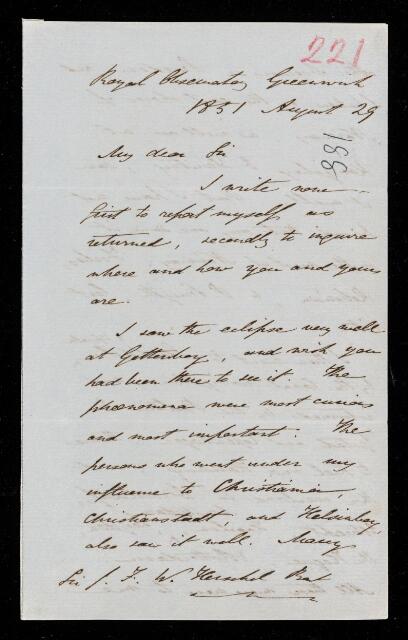 221
Royal Observatory Greenwich
1851 August 29
188
My dear Sir
I write now
first to report myself as
returned, secondly to inquire
where and how you and yours
are.
I saw the eclipse very well
at Gottenburg, and wish you
had been there to see it. The
phænomena were most curious
and most important. The
persons who went under my
influence to Christiania,
Christianstadt, and Helsinborg,
also saw it well. Many
Sir J. F. W. Herschel Bart